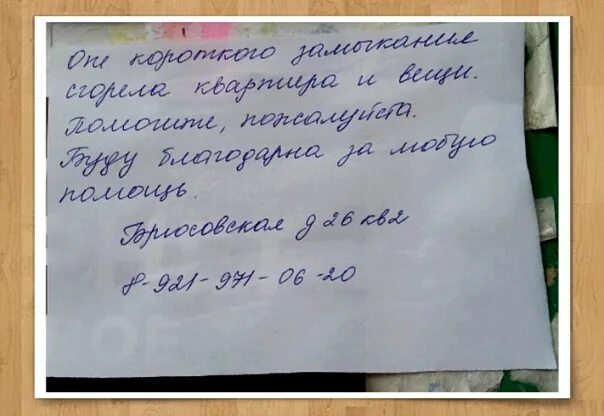 От короткого замыкание
сгорела квартира и вещи.
Помогите, пожалуйста.
Буду благодарна за любую
помощь.
Брюсовская д 26 кв 2
8-921-971-06-20